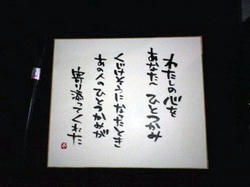 わたしの心を
あなたへひとつかみ
くじけそうになったとき
あの人のひとつかみが
寄り添ってくれた